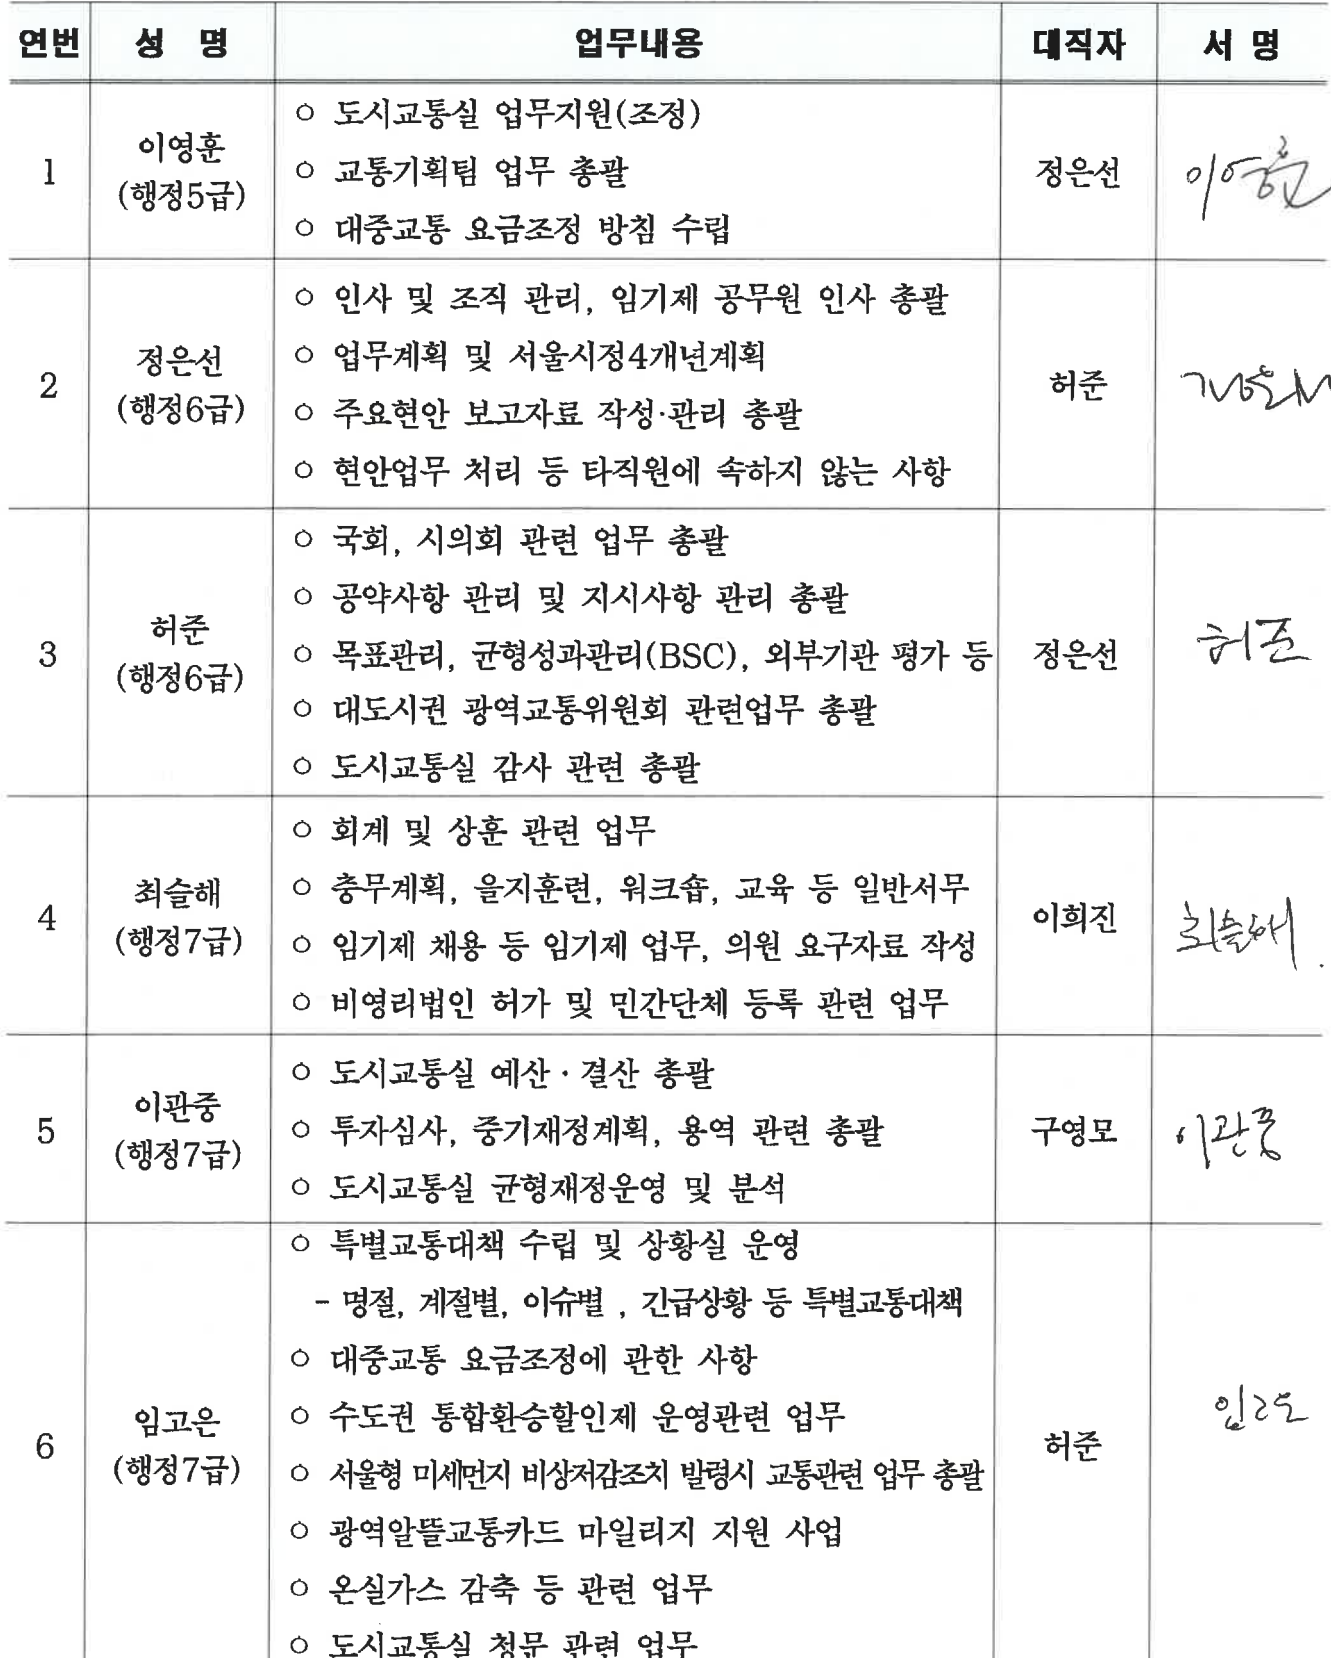 연번 성 명 업무내용 대직자 서 명
1
이영훈
(행정5급)
○ 도시교통실 업무지원(조정)
○ 교통기획팀 업무 총괄
○ 대중교통 요금조정 방침 수립
정은선
이영훈
2
정은선
(행정6급)
○ 인사 및 조직 관리, 임기제 공무원 인사 총괄
○ 업무계획 및 서울시정4개년계획
○ 주요현안 보고자료 작성·관리 총괄
○ 현안업무 처리 등 타직원에 속하지 않는 사항
허준
정은선
3
허준
(행정6급)
○ 국회, 시의회 관련 업무 총괄
○ 공약사항 관리 및 지시사항 관리 총괄
○ 목표관리, 균형성과관리(BSC), 외부기관 평가 등
○ 대도시권 광역교통위원회 관련업무 총괄
○ 도시교통실 감사 관련 총괄
정은선
허준
4
최슬해
(행정7급)
○ 회계 및 상훈 관련 업무
○ 충무계획, 을지훈련, 워크숍, 교육 등 일반서무
○ 임기제 채용 등 임기제 업무, 의원 요구자료 작성
○ 비영리법인 허가 및 민간단체 등록 관련 업무
이희진
최슬해
5
이관중
(행정7급)
○ 도시교통실 예산·결산 총괄
○ 투자심사, 중기재정계획, 용역 관련 총괄
○ 도시교통실 균형재정운영 및 분석
구영모
이관중
6
임고은
(행정7급)
○ 특별교통대책 수립 및 상황실 운영
- 명절, 계절별, 이슈별 , 긴급상황 등 특별교통대책
○ 대중교통 요금조정에 관한 사항
○ 수도권 통합환승할인제 운영관련 업무
○ 서울형 미세먼지 비상저감조치 발령시 교통관련 업무 총괄
○ 광역알뜰교통카드 마일리지 지원 사업
○ 온실가스 감축 등 관련 업무
○ 도시교통실 청문 관련 업무
허준
임고은